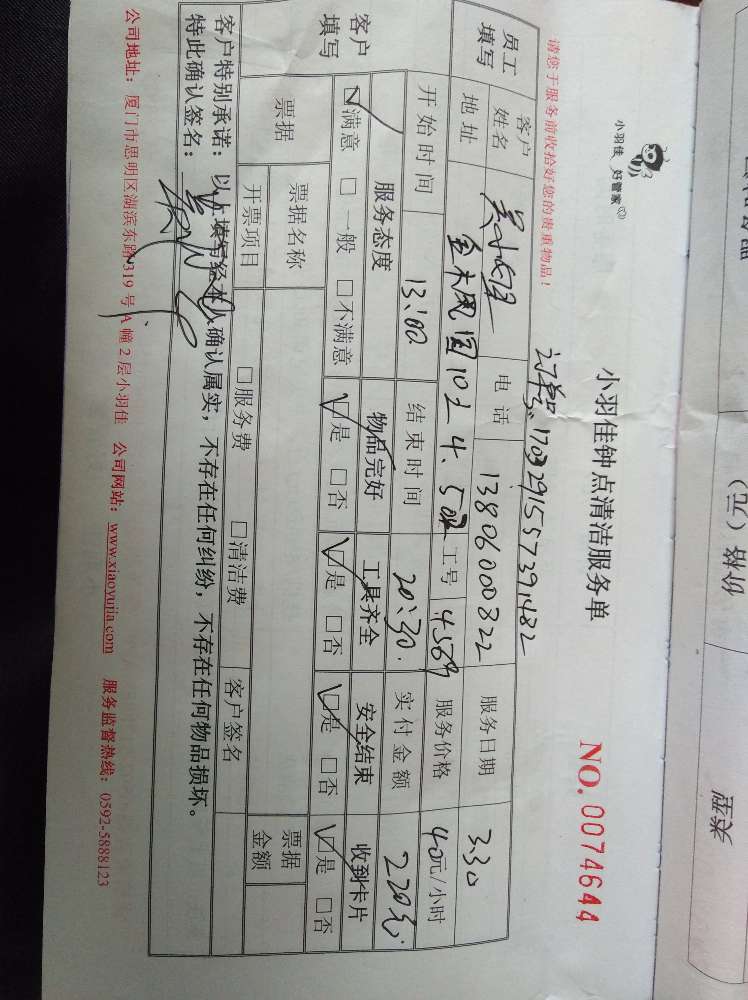 小羽佳 好管家
小羽佳钟点清洁服务单
NO. 0074644
请您于服务前收拾好您的贵重物品！
订单号:1703291557391482
员工填写
客户姓名
电话 13806000822
服务日期 3.30
地址
工号 4569
服务价格 40元/小时
开始时间 13:00
结束时间 20:30.
实付金额 220元
客户填写
服务态度 物品完好 工具齐全 安全结束 收到卡片
☑满意 □一般 □不满意 ☑是 □否 ☑是 □否 ☑是 □否 ☑是 □否
票据
票据名称
票据金额
开票项目 □服务费 □清洁费 客户签名
客户特别承诺：以上填写经本人确认属实，不存在任何纠纷，不存在任何物品损坏。
特此确认签名：
公司地址：厦门市思明区湖滨东路319号A幢2层小羽佳 公司网站：www.xiaoyujia.com 服务监督热线：0592-5888123
价格（元）